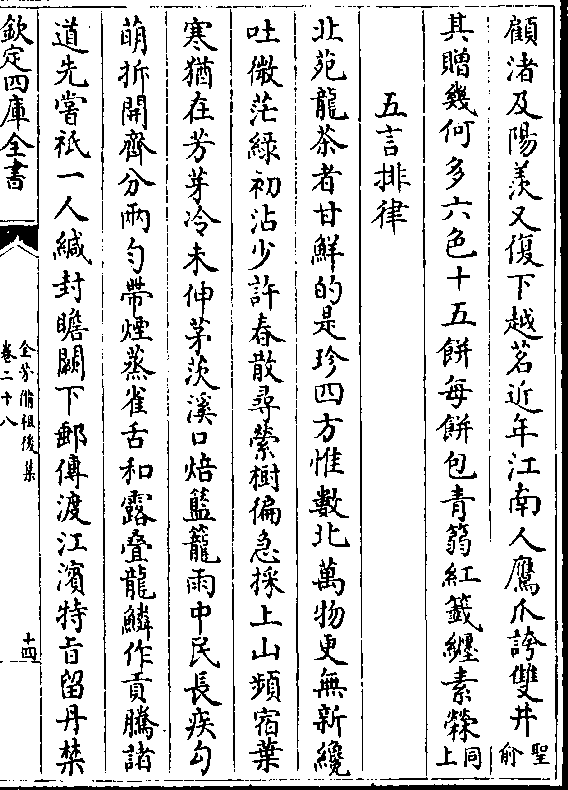 顧渚及陽羨又復下越茗近年江南人鷹爪誇雙井聖俞
其贈幾何多六色十五餅每餅包青篛紅籤纏素㯋同上
五言排律
北苑龍茶者甘鮮的是珍四方惟數北萬物更無新纔
吐微茫綠初沾少許春散尋縈樹徧急採上山頻宿葉
寒猶在芳芽冷未伸茅茨溪口焙籃籠雨中民長疾勾
萌拆開齊分兩勻帶煙蒸雀舌和露疊龍鱗作貢騰諸
道先嘗祗一人緘封瞻闕下郵傳渡江濱特旨留丹禁
欽定四庫全書
全芳備祖後集
卷二十八
十四